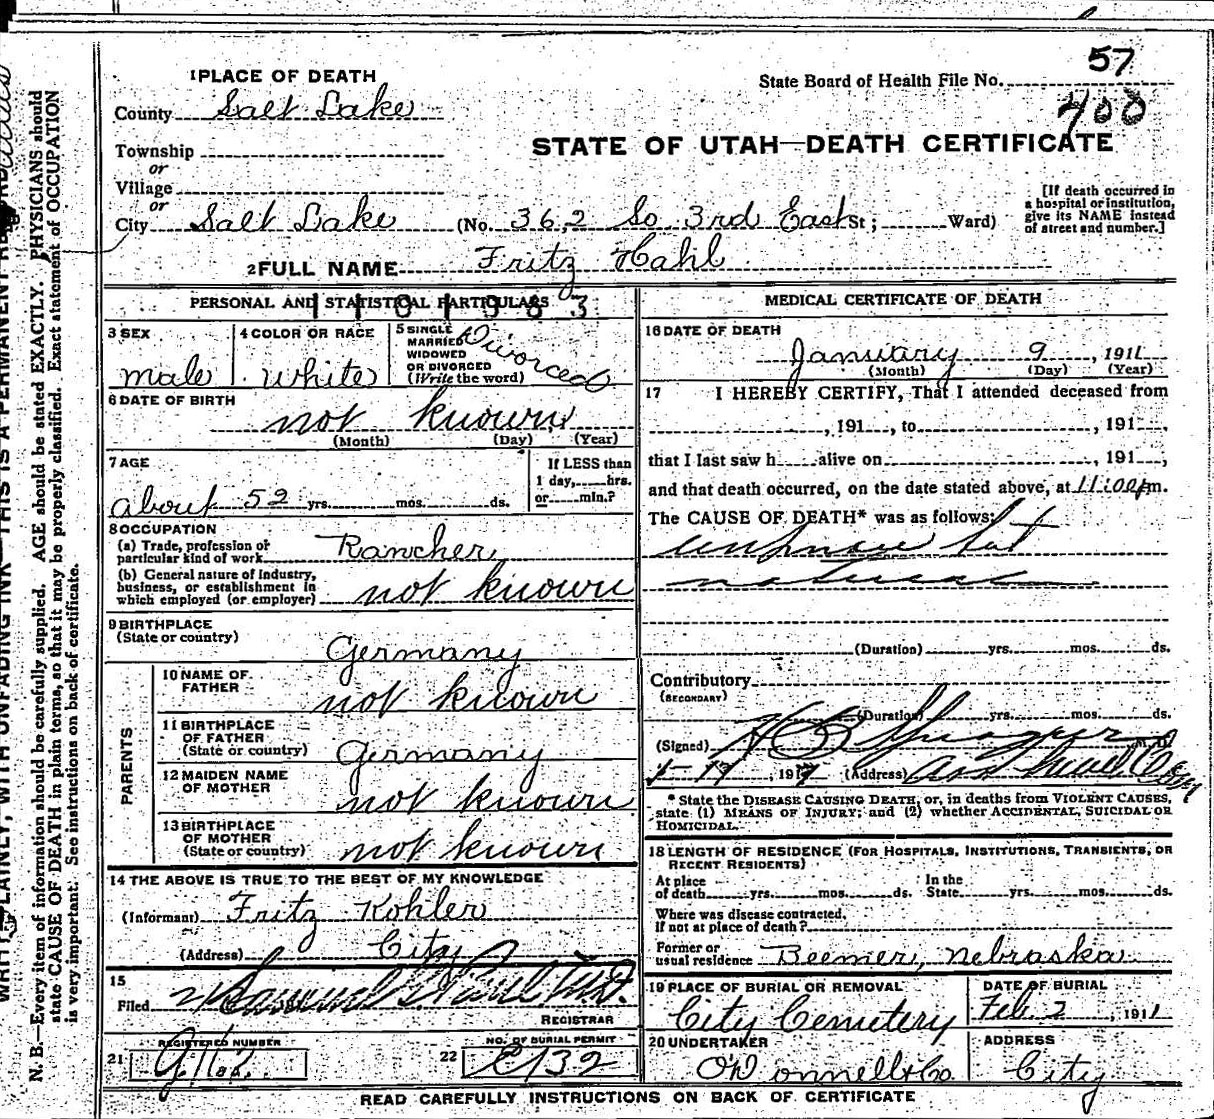 57
State Board of Health File No.
400
1 PLACE OF DEATH
County Salt Lake
STATE OF UTAH—DEATH CERTIFICATE
Township
or
Village
or
City Salt Lake (No. 362 So 3rd East St; Ward)
[If death occurred in a hospital or institution, give its NAME instead of street and number.]
2 FULL NAME Fritz Hahl
PERSONAL AND STATISTICAL PARTICULARS
3 SEX
male
4 COLOR OR RACE
White
5 SINGLE
MARRIED
WIDOWED
OR DIVORCED
(Write the word)
Divorced
6 DATE OF BIRTH
not known
(Month) (Day) (Year)
7 AGE
about 52 yrs. mos. ds.
If LESS than
1 day, hrs.
or min.?
8 OCCUPATION
(a) Trade, profession or
particular kind of work Rancher
(b) General nature of industry,
business, or establishment in
which employed (or employer) not known
9 BIRTHPLACE
(State or country)
Germany
PARENTS
10 NAME OF
FATHER
not known
11 BIRTHPLACE
OF FATHER
(State or country) Germany
12 MAIDEN NAME
OF MOTHER
not known
13 BIRTHPLACE
OF MOTHER
(State or country) not known
14 THE ABOVE IS TRUE TO THE BEST OF MY KNOWLEDGE
(Informant) Fritz Kohler
(Address) City
15
Filed
REGISTRAR
REGISTERED NUMBER
21
NO. OF BURIAL PERMIT
22 E132
MEDICAL CERTIFICATE OF DEATH
16 DATE OF DEATH
January 9, 1911
(Month) (Day) (Year)
17 I HEREBY CERTIFY, That I attended deceased from
, 191 , to , 191 ,
that I last saw h alive on , 191 ,
and that death occurred, on the date stated above, at 11:00 pm.
The CAUSE OF DEATH* was as follows:
unknown but
natural
(Duration) yrs. mos. ds.
Contributory
(SECONDARY)
(Duration) yrs. mos. ds.
(Signed) M. D.
, 191 (Address)
* State the DISEASE CAUSING DEATH, or, in deaths from VIOLENT CAUSES,
state (1) MEANS OF INJURY; and (2) whether ACCIDENTAL, SUICIDAL OR
HOMICIDAL.
18 LENGTH OF RESIDENCE (FOR HOSPITALS, INSTITUTIONS, TRANSIENTS, OR
RECENT RESIDENTS)
At place
of death yrs. mos. ds. In the
State yrs. mos. ds.
Where was disease contracted,
if not at place of death?
Former or
usual residence Beemer, Nebraska
19 PLACE OF BURIAL OR REMOVAL
City Cemetery
DATE OF BURIAL
Feb 2, 1911
20 UNDERTAKER
O'Donnell & Co.
ADDRESS
City
READ CAREFULLY INSTRUCTIONS ON BACK OF CERTIFICATE
N. B.—Every item of information should be carefully supplied. AGE should be stated EXACTLY. PHYSICIANS should
state CAUSE OF DEATH in plain terms, so that it may be properly classified. Exact statement of OCCUPATION
is very important. See instructions on back of certificate.